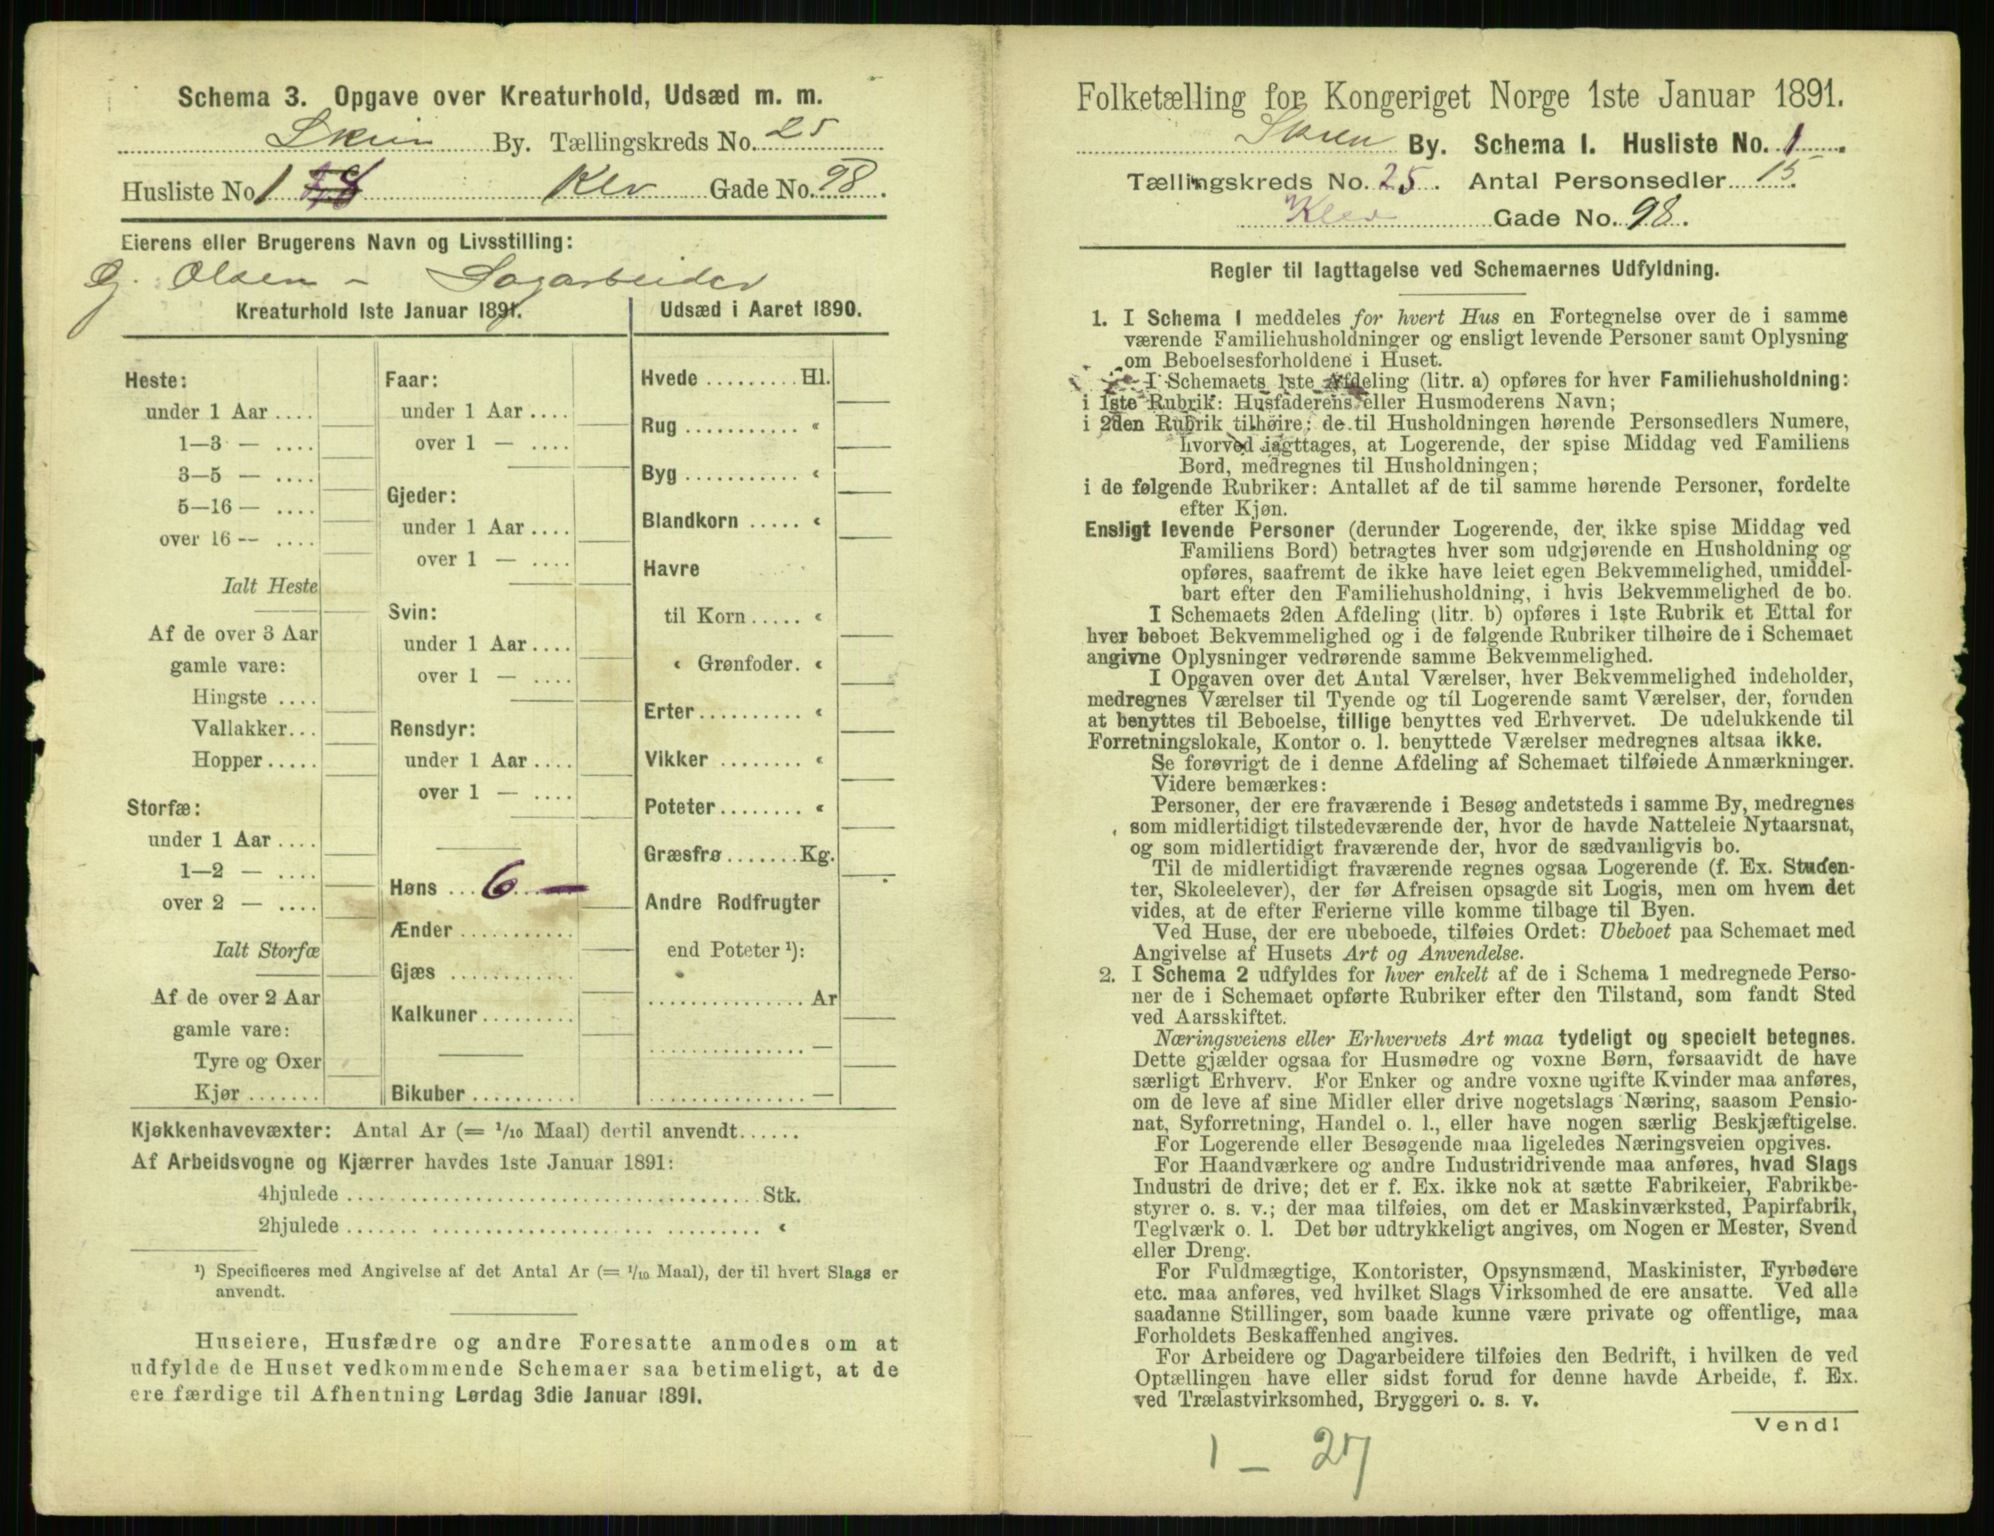 Schema 3. Opgave over Kreaturhold, Udsæd m. m.
Skien By. Tællingskreds No. 25
Husliste No 1 Klev Gade No. 98.
Eierens eller Brugerens Navn og Livsstilling:
G. Olsen - Sagarbeider
Kreaturhold 1ste Januar 1891.
Heste:
under 1 Aar ....
1—3 — ....
3—5 — ....
5—16 — ....
over 16 — ....
Ialt Heste
Af de over 3 Aar
gamle vare:
Hingste ....
Vallakker...
Hopper .....
Storfæ:
under 1 Aar ....
1—2 — ....
over 2 — ....
Ialt Storfæ
Af de over 2 Aar
gamle vare:
Tyre og Oxer
Kjør .......
Faar:
under 1 Aar ....
over 1 — ....
Gjeder:
under 1 Aar ....
over 1 — ....
Svin:
under 1 Aar ....
over 1 — ....
Rensdyr:
under 1 Aar ....
over 1 — ....
Høns ... 6 —
Ænder ...........
Gjæs ............
Kalkuner .........
Bikuber ..........
Udsæd i Aaret 1890.
Hvede ......... Hl.
Rug ........... «
Byg ........... «
Blandkorn ..... «
Havre
til Korn ..... «
« Grønfoder. «
Erter .......... «
Vikker ........ «
Poteter ........ «
Græsfrø ....... Kg.
Andre Rodfrugter
end Poteter ¹):
............... Ar
............... —
............... —
Kjøkkenhavevæxter: Antal Ar (= 1/10 Maal) dertil anvendt......
Af Arbeidsvogne og Kjærrer havdes 1ste Januar 1891:
4hjulede ........................................ Stk.
2hjulede ........................................ «
¹) Specificeres med Angivelse af det Antal Ar (= 1/10 Maal), der til hvert Slags er
anvendt.
Huseiere, Husfædre og andre Foresatte anmodes om at
udfylde de Huset vedkommende Schemaer saa betimeligt, at de
ere færdige til Afhentning Lørdag 3die Januar 1891.
Folketælling for Kongeriget Norge 1ste Januar 1891.
Skien By. Schema I. Husliste No. 1
Tællingskreds No. 25. Antal Personsedler 15
Klev Gade No. 98.
Regler til Iagttagelse ved Schemaernes Udfyldning.
1. I Schema 1 meddeles for hvert Hus en Fortegnelse over de i samme
værende Familiehusholdninger og ensligt levende Personer samt Oplysning
om Beboelsesforholdene i Huset.
I Schemaets 1ste Afdeling (litr. a) opføres for hver Familiehusholdning:
i 1ste Rubrik: Husfaderens eller Husmoderens Navn;
i 2den Rubrik tilhøire: de til Husholdningen hørende Personsedlers Numere,
hvorved iagttages, at Logerende, der spise Middag ved Familiens
Bord, medregnes til Husholdningen;
i de følgende Rubriker: Antallet af de til samme hørende Personer, fordelte
efter Kjøn.
Ensligt levende Personer (derunder Logerende, der ikke spise Middag ved
Familiens Bord) betragtes hver som udgjørende en Husholdning og
opføres, saafremt de ikke have leiet egen Bekvemmelighed, umiddel-
bart efter den Familiehusholdning, i hvis Bekvemmelighed de bo.
I Schemaets 2den Afdeling (litr. b) opføres i 1ste Rubrik et Ettal for
hver beboet Bekvemmelighed og i de følgende Rubriker tilhøire de i Schemaet
angivne Oplysninger vedrørende samme Bekvemmelighed.
I Opgaven over det Antal Værelser, hver Bekvemmelighed indeholder,
medregnes Værelser til Tyende og til Logerende samt Værelser, der, foruden
at benyttes til Beboelse, tillige benyttes ved Erhvervet. De udelukkende til
Forretningslokale, Kontor o. l. benyttede Værelser medregnes altsaa ikke.
Se forøvrigt de i denne Afdeling af Schemaet tilføiede Anmærkninger.
Videre bemærkes:
Personer, der ere fraværende i Besøg andetsteds i samme By, medregnes
som midlertidigt tilstedeværende der, hvor de havde Natteleie Nytaarsnat,
og som midlertidigt fraværende der, hvor de sædvanligvis bo.
Til de midlertidigt fraværende regnes ogsaa Logerende (f. Ex. Studen-
ter, Skoleelever), der før Afreisen opsagde sit Logis, men om hvem det
vides, at de efter Ferierne ville komme tilbage til Byen.
Ved Huse, der ere ubeboede, tilføies Ordet: Ubeboet paa Schemaet med
Angivelse af Husets Art og Anvendelse.
2. I Schema 2 udfyldes for hver enkelt af de i Schema 1 medregnede Perso-
ner de i Schemaet opførte Rubriker efter den Tilstand, som fandt Sted
ved Aarsskiftet.
Næringsveiens eller Erhvervets Art maa tydeligt og specielt betegnes.
Dette gjælder ogsaa for Husmødre og voxne Børn, forsaavidt de have
særligt Erhverv. For Enker og andre voxne ugifte Kvinder maa anføres,
om de leve af sine Midler eller drive nogetslags Næring, saasom Pensio-
nat, Syforretning, Handel o. l., eller have nogen særlig Beskjæftigelse.
For Logerende eller Besøgende maa ligeledes Næringsveien opgives.
For Haandværkere og andre Industridrivende maa anføres, hvad Slags
Industri de drive; det er f. Ex. ikke nok at sætte Fabrikeier, Fabrikbe-
styrer o. s. v.; der maa tilføies, om det er Maskinværksted, Papirfabrik,
Teglværk o. l. Det bør udtrykkeligt angives, om Nogen er Mester, Svend
eller Dreng.
For Fuldmægtige, Kontorister, Opsynsmænd, Maskinister, Fyrbødere
etc. maa anføres, ved hvilket Slags Virksomhed de ere ansatte. Ved alle
saadanne Stillinger, som baade kunne være private og offentlige, maa
Forholdets Beskaffenhed angives.
For Arbeidere og Dagarbeidere tilføies den Bedrift, i hvilken de ved
Optællingen have eller sidst forud for denne havde Arbeide, f. Ex.
ved Trælastvirksomhed, Bryggeri o. s. v.
Vend!
1 — 27